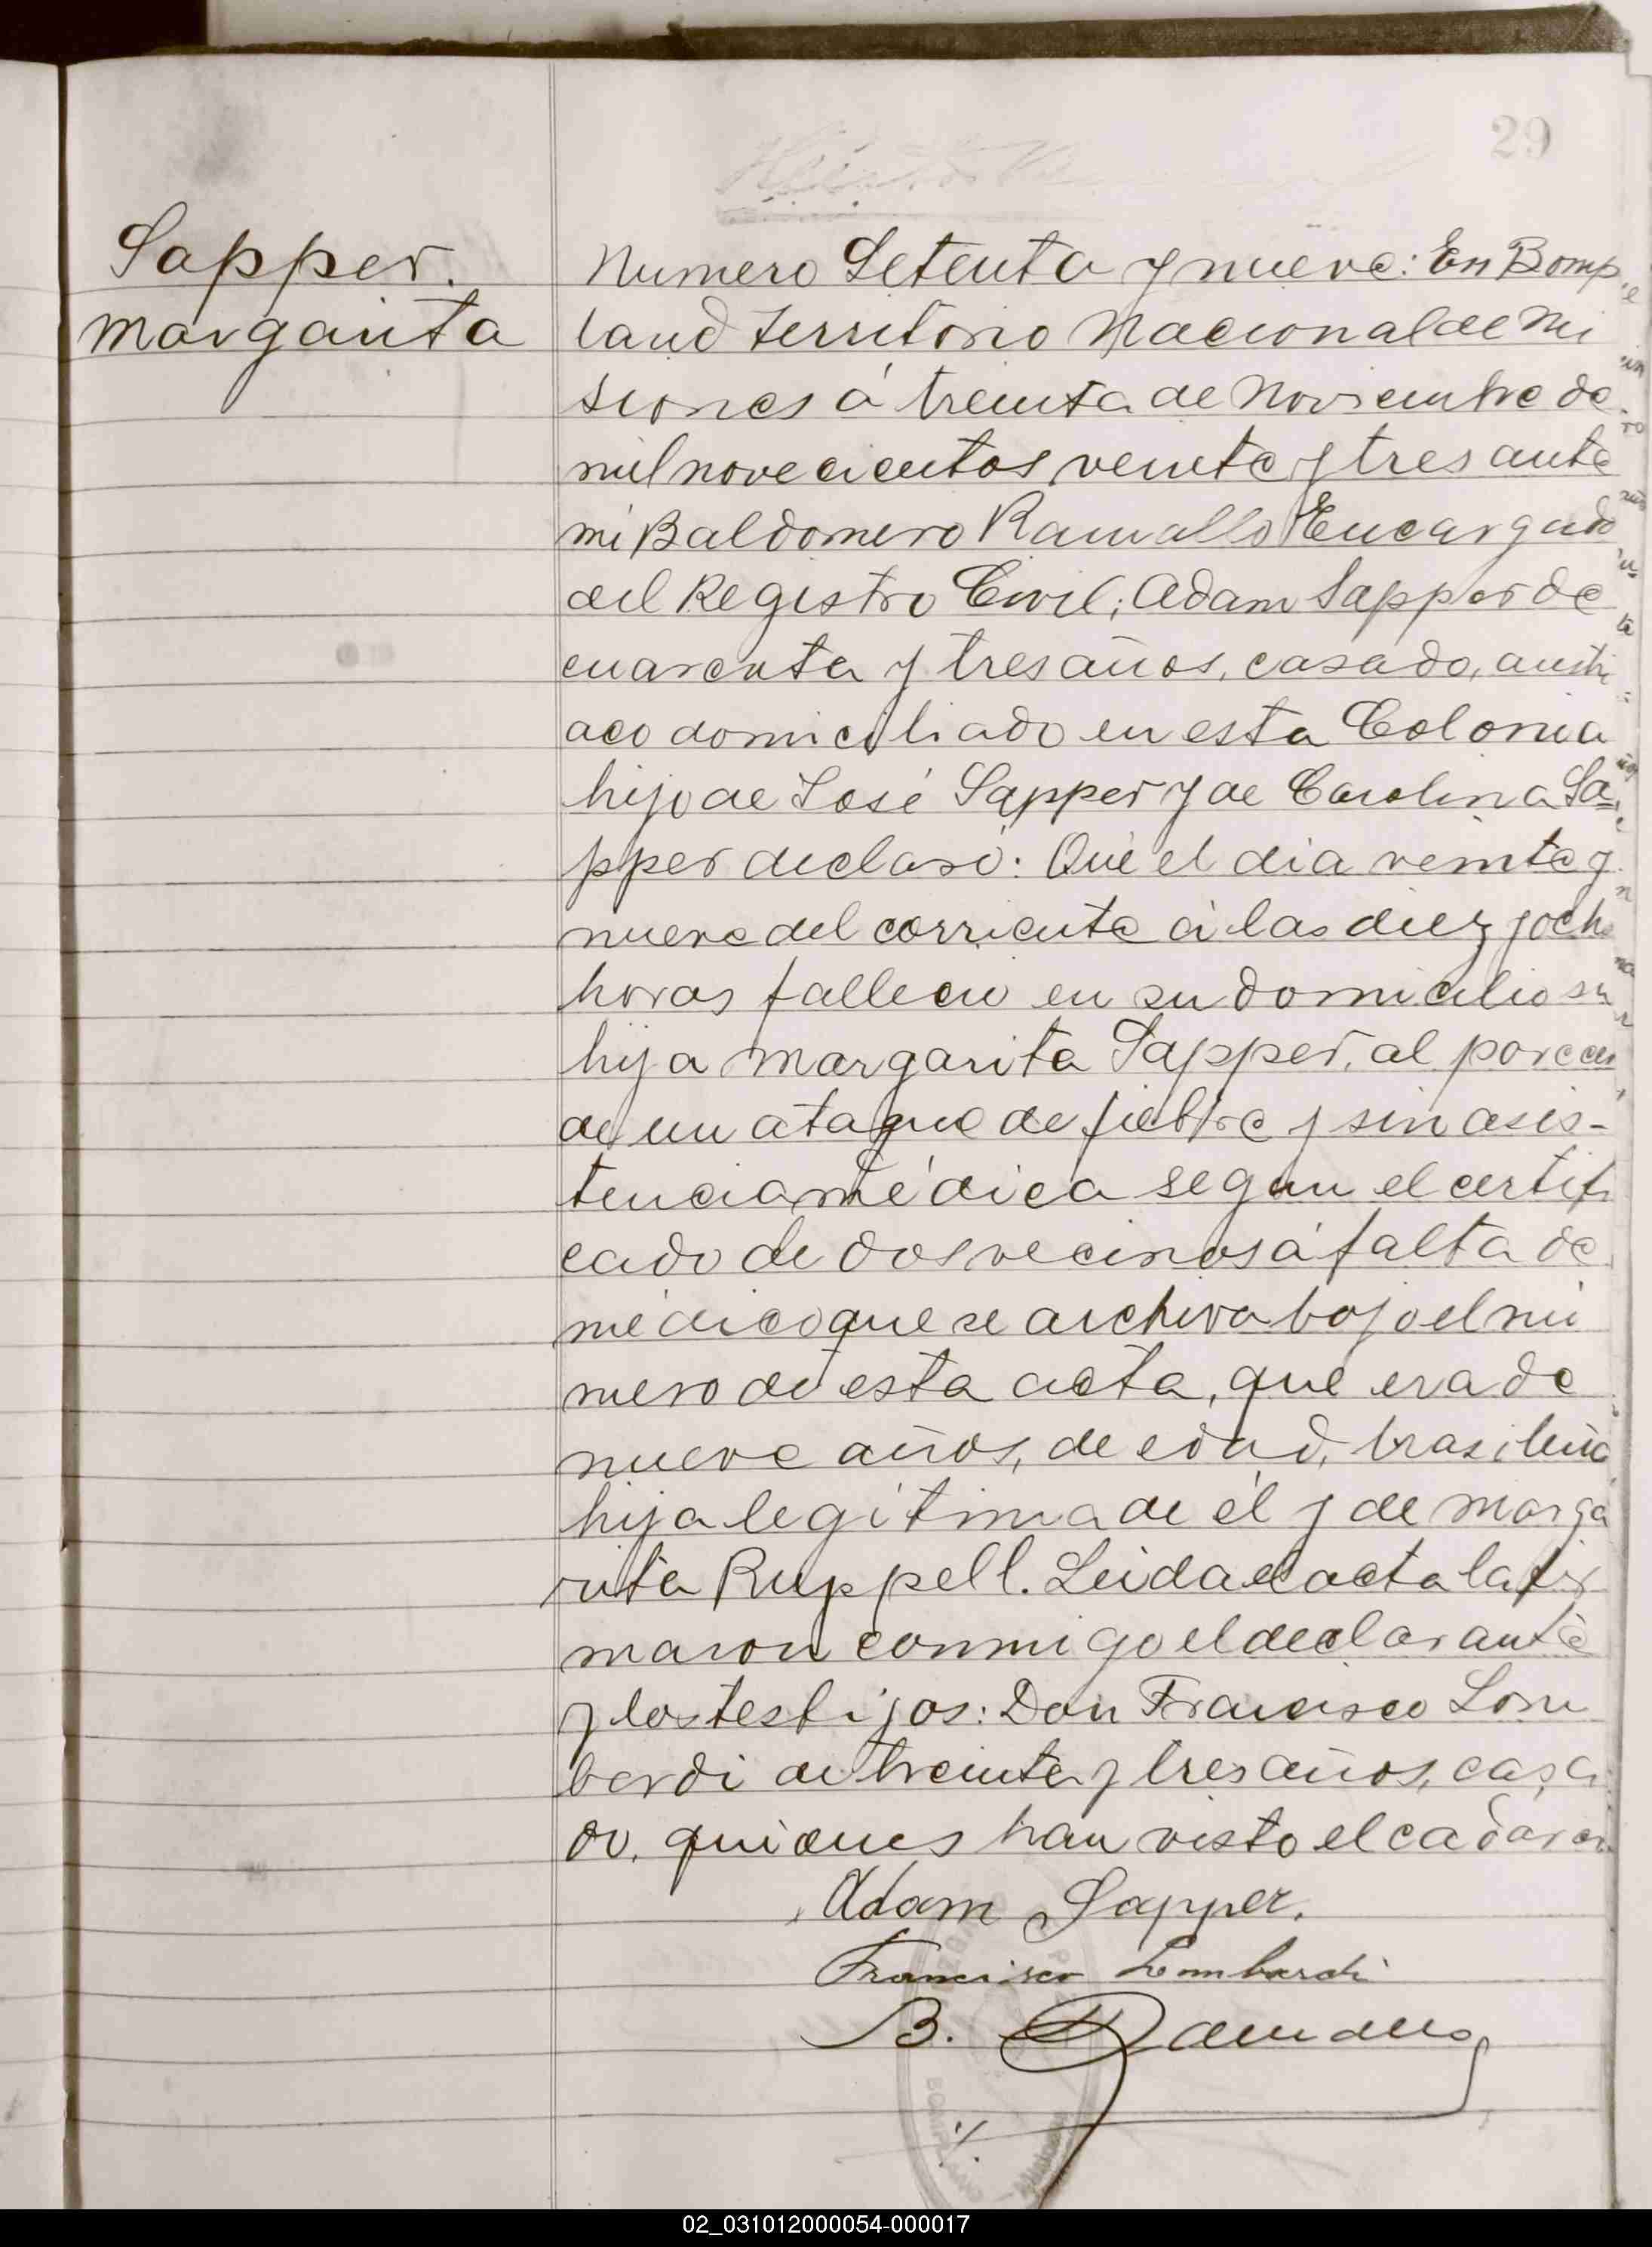 29
Sapper.
Margarita
Numero Setenta y nueve: En Bomp
land Territorio Nacional de Mi
siones á treinta de Noviembre de
mil novecientos veinte y tres ante
mi Baldomero Ramallo Encargado
del Registro Civil; Adam Sapper de
cuarenta y tres años, casado, austri
aco domiciliado en esta Colonia
hijo de José Sapper y de Carolina Sa
pper declaró: Que el dia veinte y
nueve del corriente á las diez y ocho
horas fallecio en su domicilio su
hija Margarita Sapper, al
de un ataque de fiebre y sin asis-
tencia médica segun el certifi
cado de dos vecinos á falta de
médico que se archiva bajo el nú
mero de esta acta, que era de
nueve años, de edad, brasileña
hija legítima de él y de Marga
rita Ruppell. Leida el acta la fir
maron conmigo el declarante
y los testijos: Don Francisco Lom
bardi de treinta y tres años, casa
do, quienes han visto el cadáver
Adam Sapper.
Francisco Lombardi
B. Ramallo
02_031012000054-000017